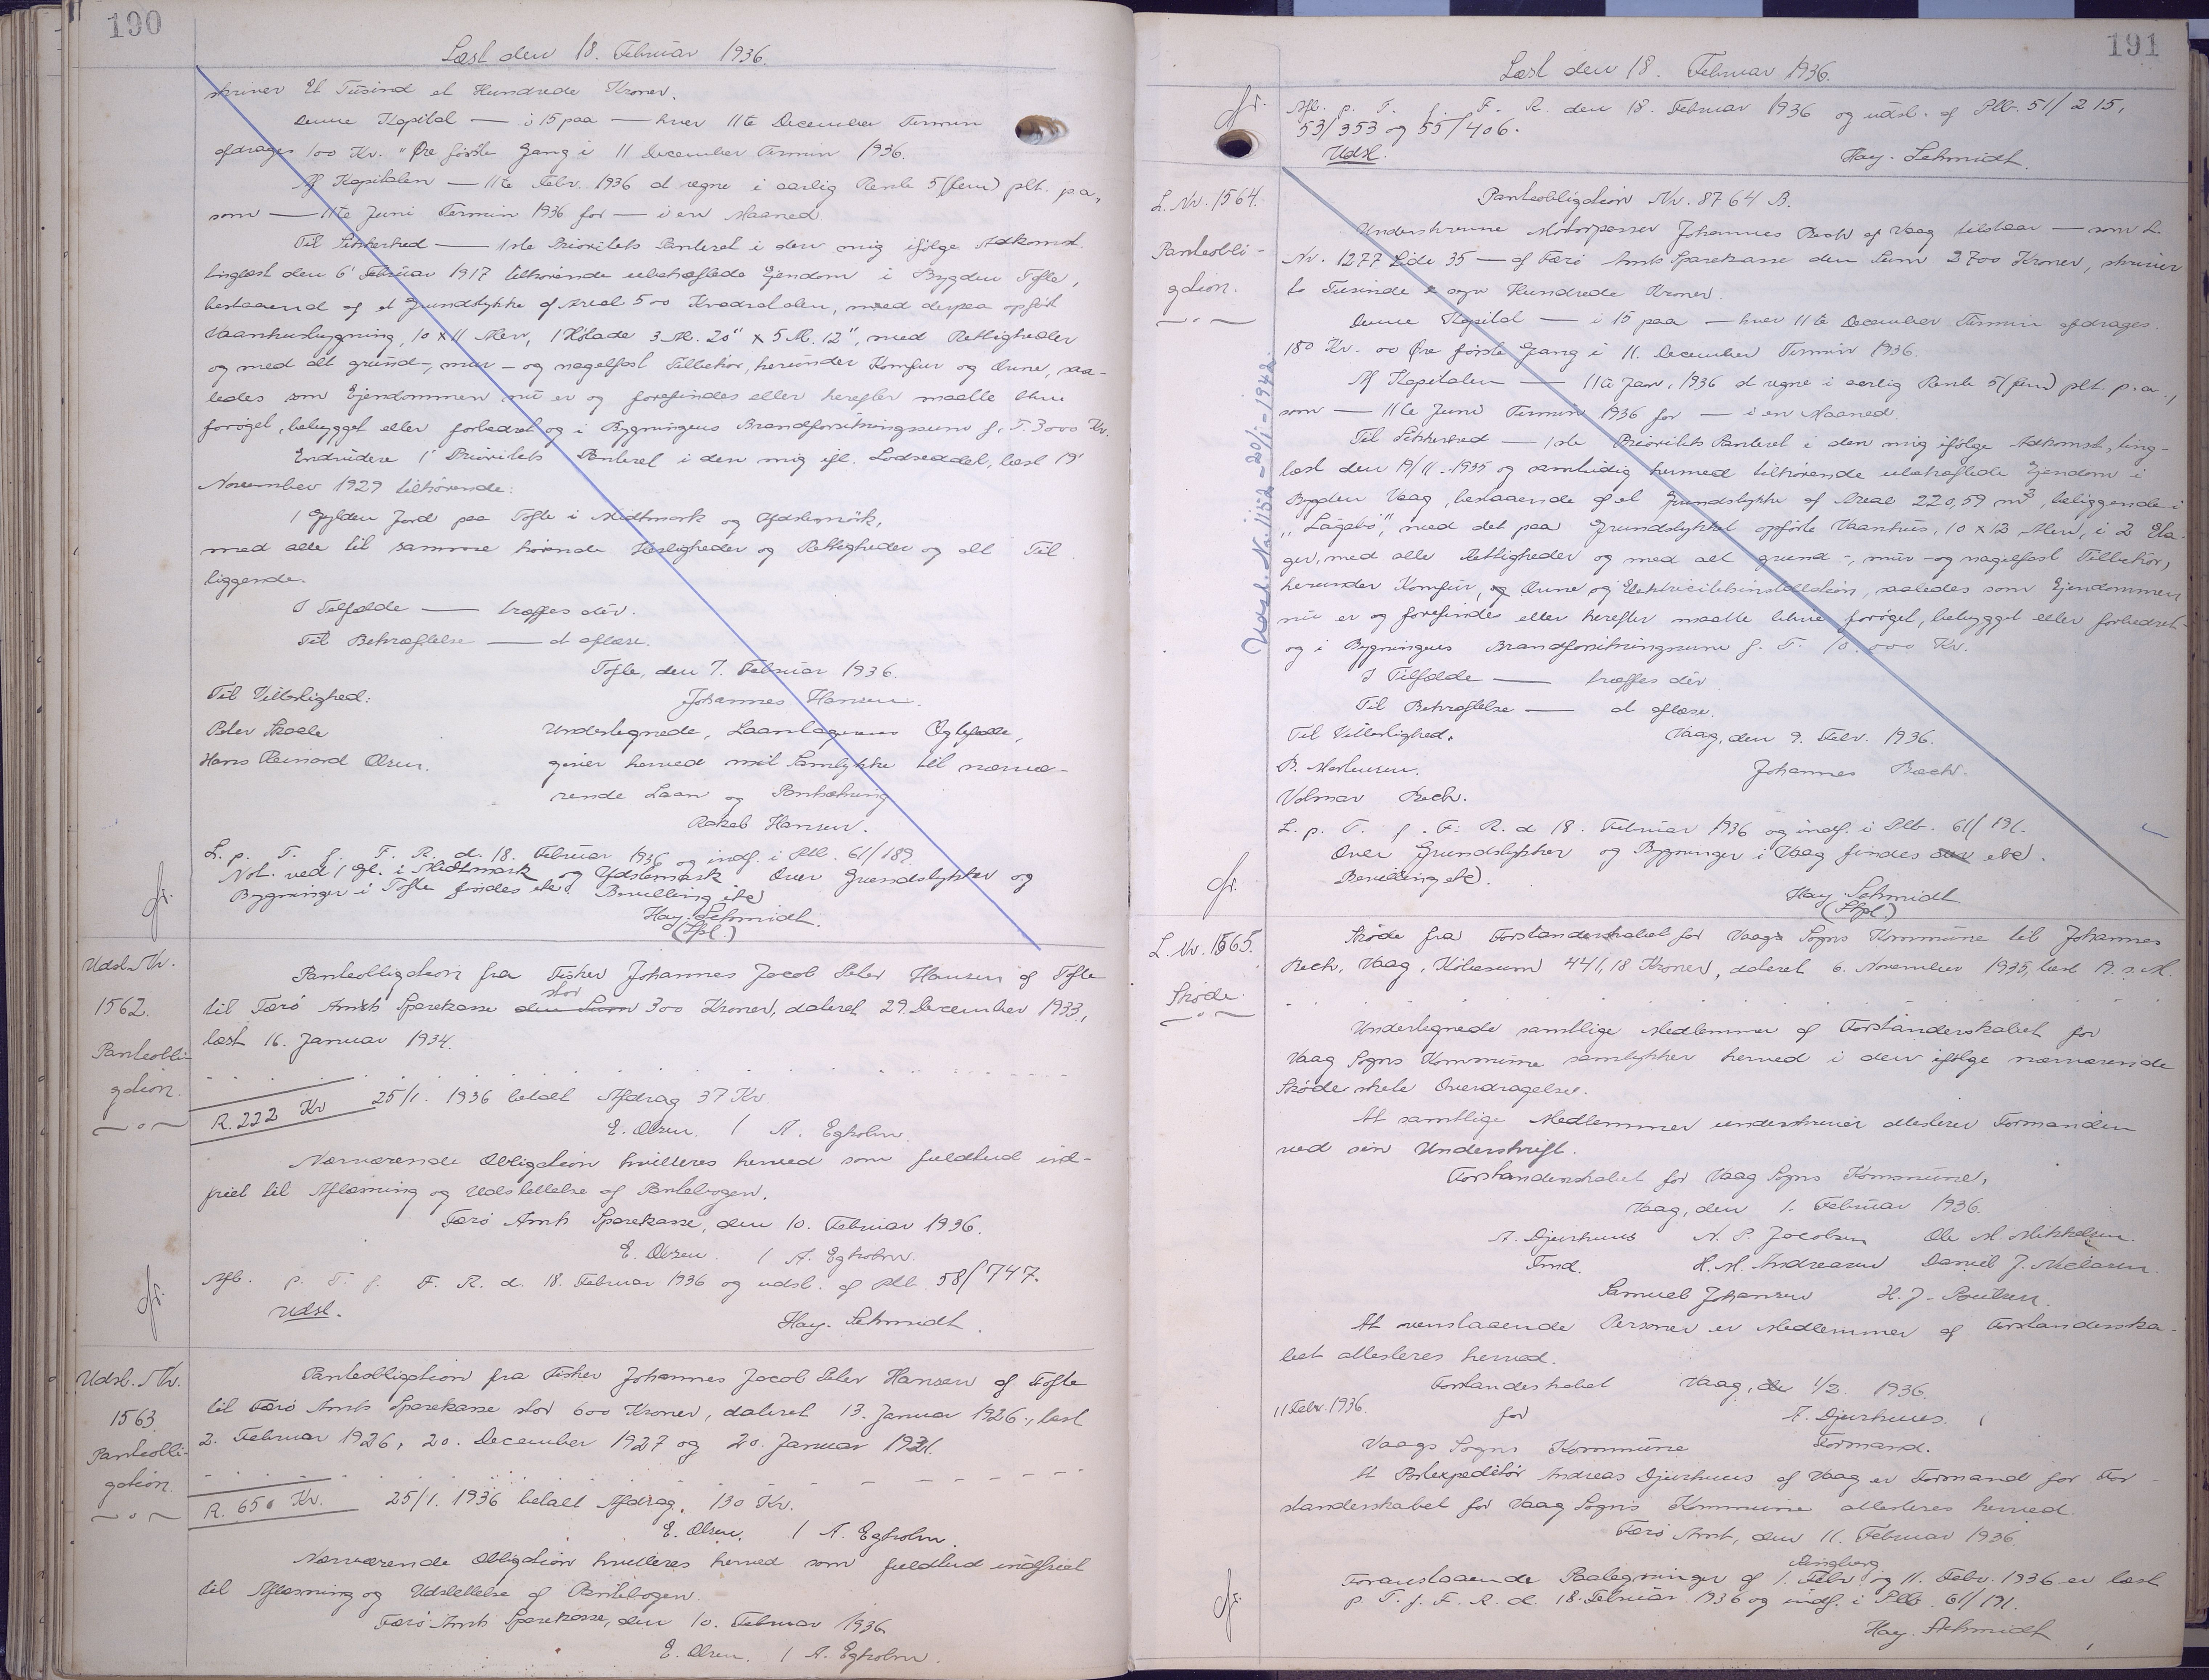 190
Læst den 18. Februar 1936.
skriver Et Tusind et Hundrede Kroner.
Denne Kapital — i 15 paa — hver 11te December Termin
afdrages 100 Kr. " Øre første Gang i 11 December Termin 1936.
Af Kapitalen — 11te Febr. 1936 at regne i aarlig Rente 5 (fem) pCt. p.a.,
som — 11te Juni Termin 1936 for — i en Maaned.
Til Sikkerhed — 1ste Prioritets Panteret i den mig ifølge Adkomst
tinglæst den 6' Februar 1917 tilhørende ubehæftede Ejendom i Bygden Tofte,
bestaaend af et Grundstykke af Areal 500 Kvadratalen, med derpaa opført
Vaanhusbygning, 10 x 11 Alen, 1 Hjlade 3 M. 20" x 5 M. 12", med Rettigheder
og med alt grund-, mur- og nagelfast Tilbehør, herunder Komfur og Ovne, saa-
ledes som Ejendommen nu er og forefindes eller herefter maatte blive
forøget, bebygget eller forbedret og i Bygningens Brandforsikringssum f. T. 3000 Kr.
Endvidere 1' Prioritets Panteret i den mig ifl. Lodseddel, læst 19'
November 1929 tilhørende:
1 Gylden Jord paa Tofte i Midtmark og Udstemark,
med alle til samme hørende Herligheder og Rettigheder og alt Til
liggende.
I Tilfælde — træffes dér.
Til Bekræftelse — at aflæse.
Tofte, den 7. Februar 1936.
Til Vitterlighed: Johannes Hansen.
Peter Skaale Undertegnede, Laantagerens Ægtefælle,
Hans Reinard Olsen. giver herved mit Samtykke til nærvæ-
rende Laan og Pantsætning
Rakel Hansen.
L. p. T. f. F. R. d. 18. Februar 1936 og indf. i Ptb. 61/189.
Not. ved 1 Gl. i Midtmark og Udstemark Over Grundstykker og
Bygninger i Tofte findes ekr. Bevilling ekr.
Hay. Schmidt.
(Stpl.)
Udsl. Nr.
1562.
Panteobli-
gation.
Panteobligation fra Fisker Johannes Jacob Peter Hansen af Tofte
til Færø Amts Sparekasse den Sum stor 300 Kroner, dateret 29. December 1933,
læst 16. Januar 1934.
R. 222 Kr 25/1. 1936 betalt Afdrag 37 Kr.
E. Olsen. / A. Egholm.
Nærværende Obligation kvitteres herved som fuldtud ind-
friet til Aflæsning og Udslettelse af Pantebogen.
Færø Amts Sparekasse, den 10. Februar 1936.
E. Olsen. / A. Egholm.
Afl. p. T. f. F. R. d. 18. Februar 1936 og udsl. af Ptb. 58/747.
Udsl. Hay. Schmidt.
Udsl. Nr.
1563.
Panteobli-
gation.
Panteobligation fra Fisker Johannes Jacob Peter Hansen af Tofte
til Færø Amts Sparekasse stor 600 Kroner, dateret 13. Januar 1926., læst
2. Februar 1926, 20. December 1927 og 20. Januar 1931.
R. 650 Kr. 25/1. 1936 betalt Afdrag. 130 Kr.
E. Olsen. / A. Egholm.
Nærværende Obligation kvitteres herved som fuldtud indfriet
til Aflæsning og Udslettelse af Pantebogen.
Færø Amts Sparekasse, den 10. Februar 1936
E. Olsen. / A. Egholm.
191
Læst den 18. Februar 1936.
Afl. p. T. f. F. R. den 18. Februar 1936 og udsl. af Ptb. 51/215,
53/353 og 55/406.
Udsl. Hay. Schmidt.
L. Nr. 1564.
Panteobli-
gation.
Udsl. Nr. 1152 - 20/1 - 1942.
Panteobligation Nr. 8764 B.
Underskrevne Motorpasser Johannes Bech af Vaag tilstaar — som L
Nr. 1277 Side 35 — af Færø Amts Sparekasse den Sum 2700 Kroner, skriver
to Tusinde syv Hundrede Kroner.
Denne Kapital — i 15 paa — hver 11te December Termin afdrages
180 Kr. 00 Øre første Gang i 11. December Termin 1936.
Af Kapitalen — 11te Jan. 1936 at regne i aarlig Rente 5 (fem) pCt. p.a.,
som — 11te Juni Termin 1936 for — i en Maaned.
Til Sikkerhed — 1ste Prioritets Panteret i den mig ifølge Adkomst, ting-
læst den 19/11.-1935 og samtidig hermed tilhørende ubehæftede Ejendom i
Bygden Vaag, bestaaende af et Grundstykke af Areal 220,59 m², beliggende i
"Lágabö", med det paa Grundstykket opførte Vaanhus, 10 x 12 Alen, i 2 Eta-
ger, med alle Rettigheder og med alt grund-, mur- og nagelfast Tilbehør,
herunder Komfur, og Ovne og Elektricitetsinstallation, saaledes som Ejendommen
nu er og forefindes eller herefter maatte blive forøget, bebygget eller forbedret
og i Bygningens Brandforsikringssum f. T. 10.000 Kr.
I Tilfælde — træffes dér
Til Bekræftelse — at aflæse.
Til Vitterlighed. Vaag, den 9. Febr. 1936.
B. Mortensen. Johannes Bech.
Volmar Bech.
L. p. T. f. F. R. d 18. Februar 1936 og indf. i Ptb. 61/191.
Over Grundstykker og Bygninger i Vaag findes ekr.
Bevilling ekr.
Hay. Schmidt
(Stpl.)
L. Nr. 1565.
Skøde.
Skøde fra Forstanderskabet for Vaags Sogns Kommune til Johannes
Bech, Vaag, Købesum 441,18 Kroner, dateret 6. November 1935, læst 19. s. M.
Undertegnede samtlige Medlemmer af Forstanderskabet for
Vaag Sogns Kommune samtykker herved i den ifølge nærværende
Skøde skete Overdragelse.
At samtlige Medlemmer underskriver attesterer Formanden
ved sin Underskrift.
Forstanderskabet for Vaag Sogns Kommune,
Vaag, den 1. Februar 1936.
A. Djurhuus N. P. Jacobsen Ole M. Mikkelsen.
Fmd. H. M. Andreasen Daniel J. Nielsen.
Samuel Johansen H. J. Poulsen.
At ovenstaaende Personer er Medlemmer af Forstanderska-
bet attesteres herved.
Forstanderskabet Vaag, 1/2. 1936.
11 Febr. 1936. for A. Djurhuus.
Vaags Sogns Kommune Formand.
At Postexpeditør Andreas Djurhuus af Vaag er Formand for For-
standerskabet for Vaag Sogns Kommune attesteres herved.
Færø Amt, den 11. Februar 1936.
Ringberg
Foranstaaende Paategninger af 1. Febr. og 11. Febr. 1936 er læst
p. T. f. F. R. d. 18. Februar 1936 og indf. i Ptb. 61/191.
Hay. Schmidt